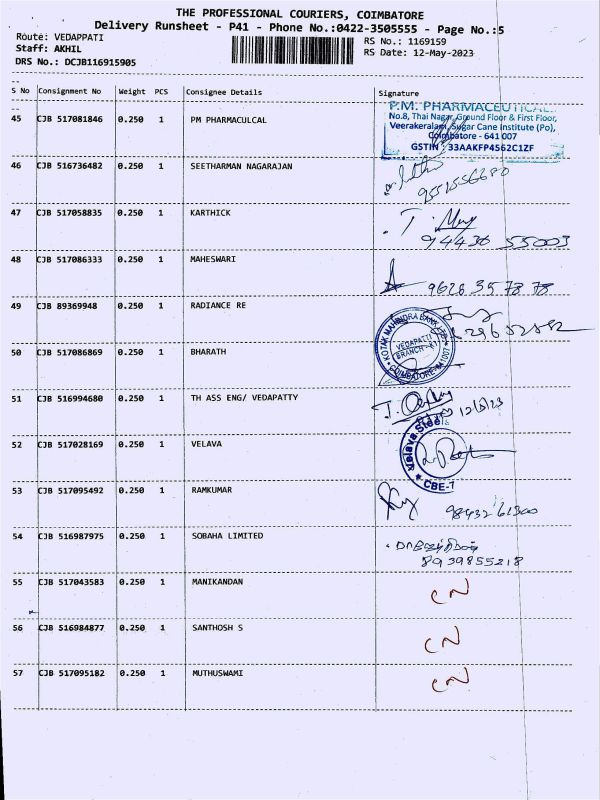 THE PROFESSIONAL COURIERS, COIMBATORE
Delivery Runsheet - P41 - Phone No.:0422-3505555 - Page No.:5
Route: VEDAPPATI
Staff: AKHIL
DRS No.: DCJB116915905
RS No.: 1169159
RS Date: 12-May-2023
S No Consignment No Weight PCS Consignee Details Signature
45 CJB 517081846 0.250 1 PM PHARMACULCAL
P.M. PHARMACEUTICAL
No.8, Thai Nagar, Ground Floor & First Floor,
Veerakeralam, Sugar Cane Institute (Po),
Coimbatore - 641 007
GSTIN : 33AAKFP4562C1ZF
46 CJB 516736482 0.250 1 SEETHARMAN NAGARAJAN
9551556680
47 CJB 517058835 0.250 1 KARTHICK
94436 55003
48 CJB 517086333 0.250 1 MAHESWARI
9628 35 78 78
49 CJB 89369948 0.250 1 RADIANCE RE
KOTAK MAHINDRA BANK LTD.
VEDAPATTI
BRANCH
COIMBATORE-641007
50 CJB 517086869 0.250 1 BHARATH
51 CJB 516994680 0.250 1 TH ASS ENG/ VEDAPATTY
12/5/23
52 CJB 517028169 0.250 1 VELAVA
Velava Steel
CBE-7
53 CJB 517095492 0.250 1 RAMKUMAR
98432 61300
54 CJB 516987975 0.250 1 SOBAHA LIMITED
8939855218
55 CJB 517043583 0.250 1 MANIKANDAN
CN
56 CJB 516984877 0.250 1 SANTHOSH S
CN
57 CJB 517095182 0.250 1 MUTHUSWAMI
CN